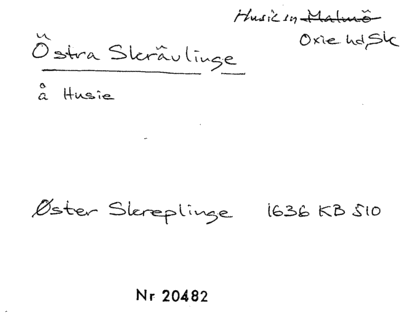 Husie sn Malmö
Oxie hd, Sk
Östra Skrävlinge
å Husie
Øster Skreplinge 1636 KB 510
Nr 20482